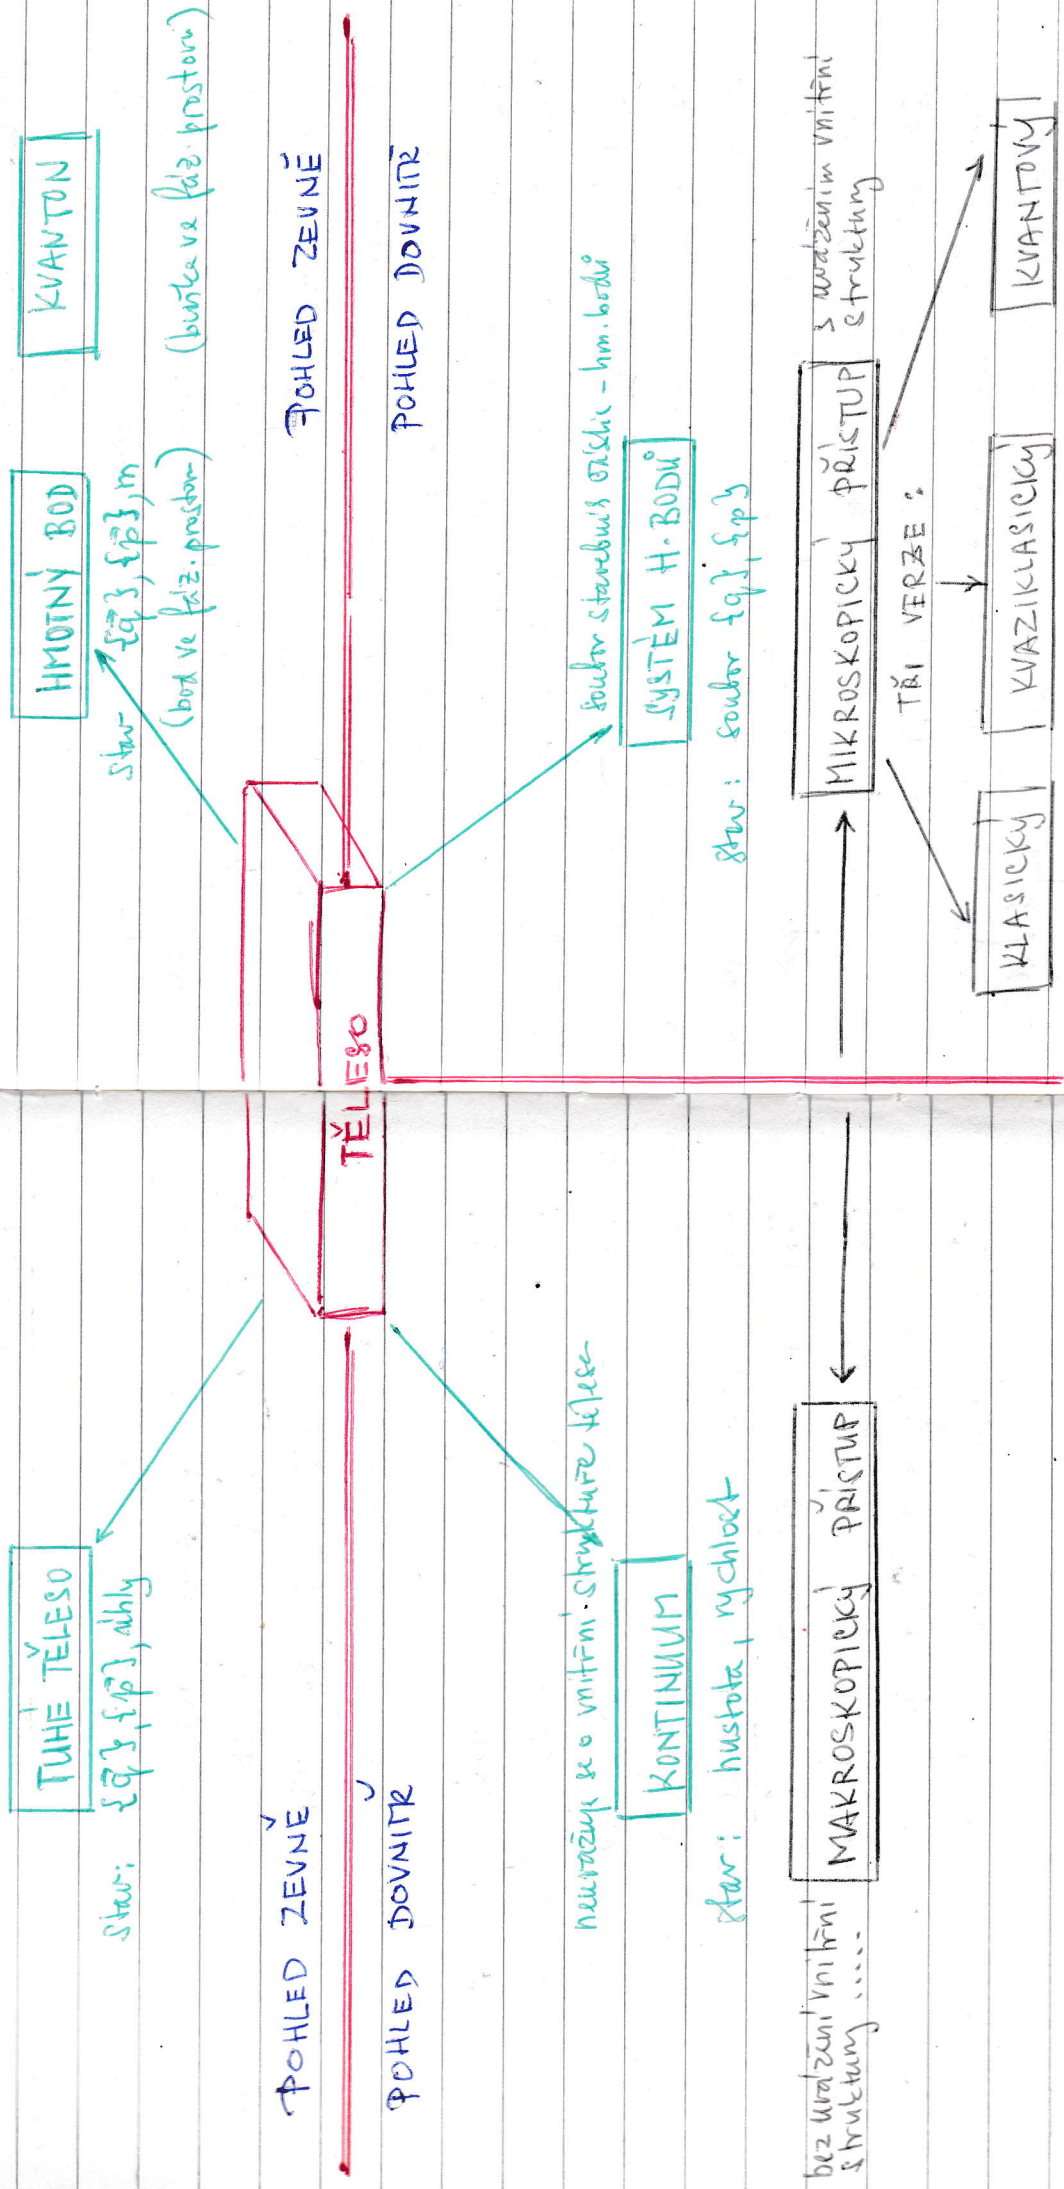 TUHÉ TĚLESO
stav: {q⃗}, {p⃗}, úhly
HMOTNÝ BOD
stav {q⃗}, {p⃗}, m
(bod ve fáz. prostoru)
KVANTON
(buňka ve fáz. prostoru)
POHLED ZEVNĚ
POHLED ZEVNĚ
TĚLESO
POHLED DOVNITŘ
POHLED DOVNITŘ
neuvažuje se o vnitřní struktuře tělesa
KONTINUUM
stav: hustota, rychlost
soubor stavebních částic - hm. bodů
SYSTÉM H. BODŮ
stav: soubor {q}, {p}
bez uvážení vnitřní
struktury .....
MAKROSKOPICKÝ PŘÍSTUP
MIKROSKOPICKÝ PŘÍSTUP
s uvážením vnitřní
struktury
TŘI VERZE:
KLASICKÝ
KVAZIKLASICKÝ
KVANTOVÝ